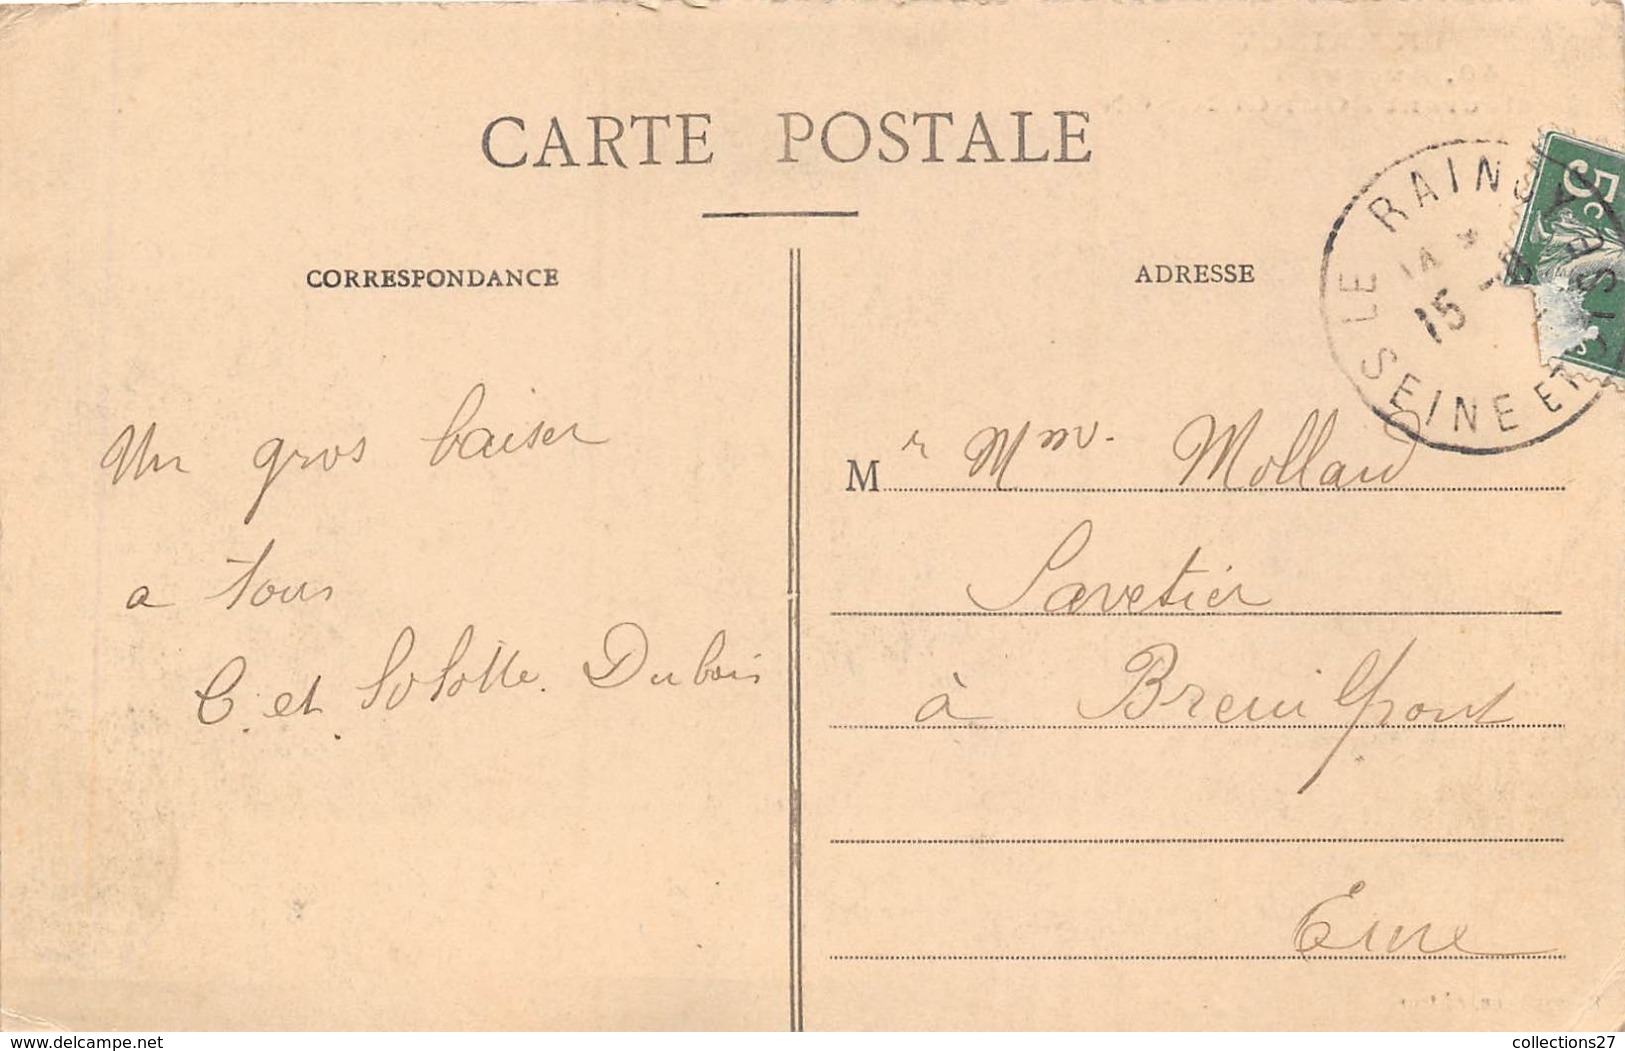 CARTE POSTALE
CORRESPONDANCE
ADRESSE
LE RAINCY
SEINE ET OISE
15
5c
Un gros baiser
a tous
C. et Lolotte Dubois
M r Mme Mollard
Savetier
à Breuilpont
Eure
www.delcampe.net
collections27